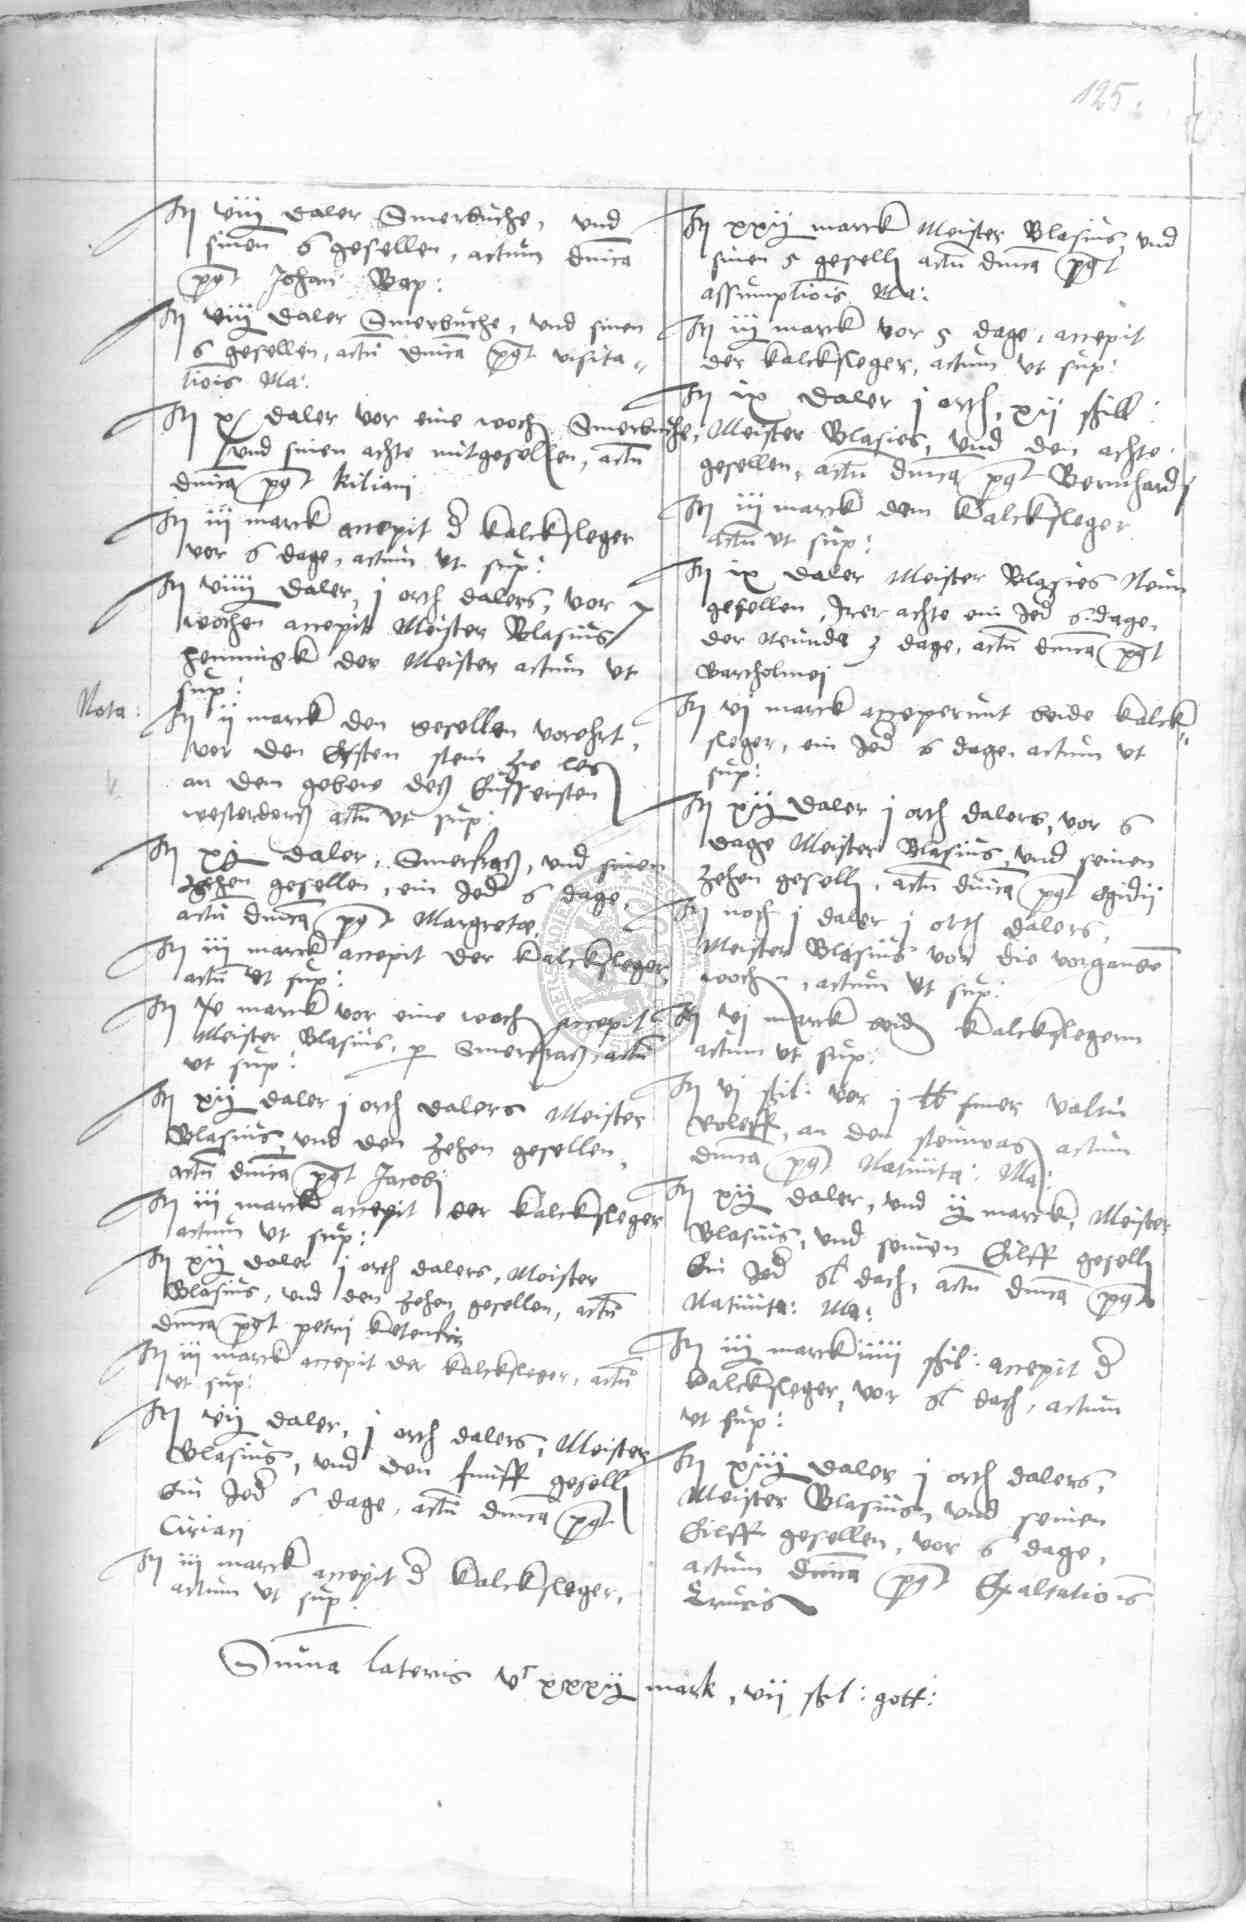 125.
It viij daler Smerbuche, vnd
sinen 6 gesellen, actum dnica
pgt Johan Bap:
It viij daler Smerbuche, vnd sinen
6 gesellen, actu dnica pgt visita
tiois Ma:
It x daler vor eine woch Smerbuche,
vnd sinen achte mitgesellen, actu
dnica pgt kiliani
It iij marck accepit d kalcksleger
vor 6 dage, actum vt sup:
It viiij daler, j orth dalers, vor 7
wochen accepit Meister Blasius
Henningk der Meister actum vt
sup:
Nota:
It ij marck den gesellen vorehrt,
vor den Ersten stein zu
an dem gebew deß
actu vt sup:
It xj daler, vnd sinen
zehen gesellen, ein Jed 6 dage,
actu dnica pgt Margrete.
It iij marck accepit der kalcksleger,
actu vt sup:
It marck vor eine woch accepit
Meister Blasius, p actu
vt sup:
It xij daler j orth dalers Meister
Blasius, vnd den zehen gesellen,
actu dnica pgt Jacobi
It iij marck accepit der kalcksleger
actum vt sup:
It xij daler j orth dalers, Meister
Blasius, vnd den zehen gesellen, actu
dnica pgt petri
It iij marck accepit der kalcksleger, actu
vt sup:
It vij daler, j orth dalers, Meister
Blasius, vnd den funff gesell
Ein Jed 6 dage, actu dnica pgt
Ciriaci
It iij marck accepit d kalcksleger,
actum vt sup:
It xxij marck Meister Blasius, vnd
sinen 5 gesell actu dnica pgt
assumptiois Ma:
It iij marck vor 5 dage, accepit
der kalcksleger, actum vt sup:
It ix daler j orth, xij shill:
Meister Blasies, vnd den achte
gesellen, actu dnica pgt Bernhardj
It iij marck dem kalcksleger
actu vt sup:
It ix daler Meister Blasies Neun
gesellen, Irer achte ein Jed 6 dage,
der Neunde 3 dage, actu dnica pgt
Bartholmej
It vj marck acceperunt beide kalck
sleger, ein Jed 6 dage, actum vt
sup:
It xij daler j orth dalers, vor 6
dage Meister Blasius, vnd seinen
zehen gesell, actu dnica pgt Egidij
It noch j daler j orth dalers,
Meister Blasius vor die vorgangē
woch, actum vt sup:
It vj marck beid kalckslegern
actum vt sup:
It vj shil: vor j tt smer
an den actum
dnica pgt Natiuita: Ma:
It xij daler, vnd ij marck, Meister
Blasius, vnd seinen Eilff gesell
Ein Jed dach, actu dnica pgt
Natiuita: Ma:
It iij marck iiij shil: accepit d
kalcksleger, vor dach, actum
vt sup:
It xiij daler j orth dalers,
Meister Blasius, vnd seinen
Eilff gesellen, vor 6 dage,
actum dnica pgt Exaltatiois
Crucis
Suma lateris xxxij mark, vij shil: gott: